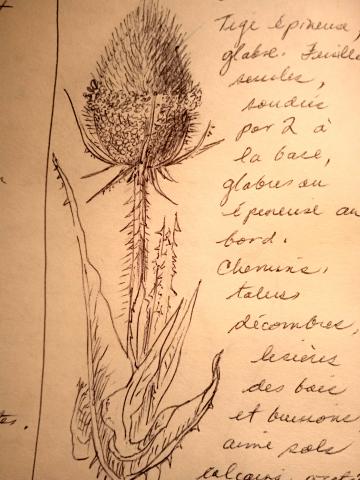 Tige épineuse,
glabre. Feuilles
sessiles,
soudées
par 2 à
la base,
glabres ou
épineuse au
bord.
Chemins,
talus
décombres,
lisières
des bois
et buissons,
aime sols
calcaires
tes.